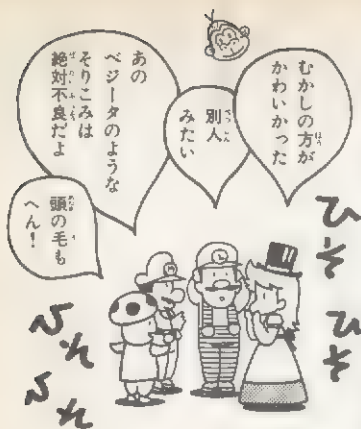 むかしの方が
かわいかった
別人
みたい
あの
ベジータのような
そりこみは
絶対不良だよ
頭の毛も
へん！
ひそ
ひそ
M
L